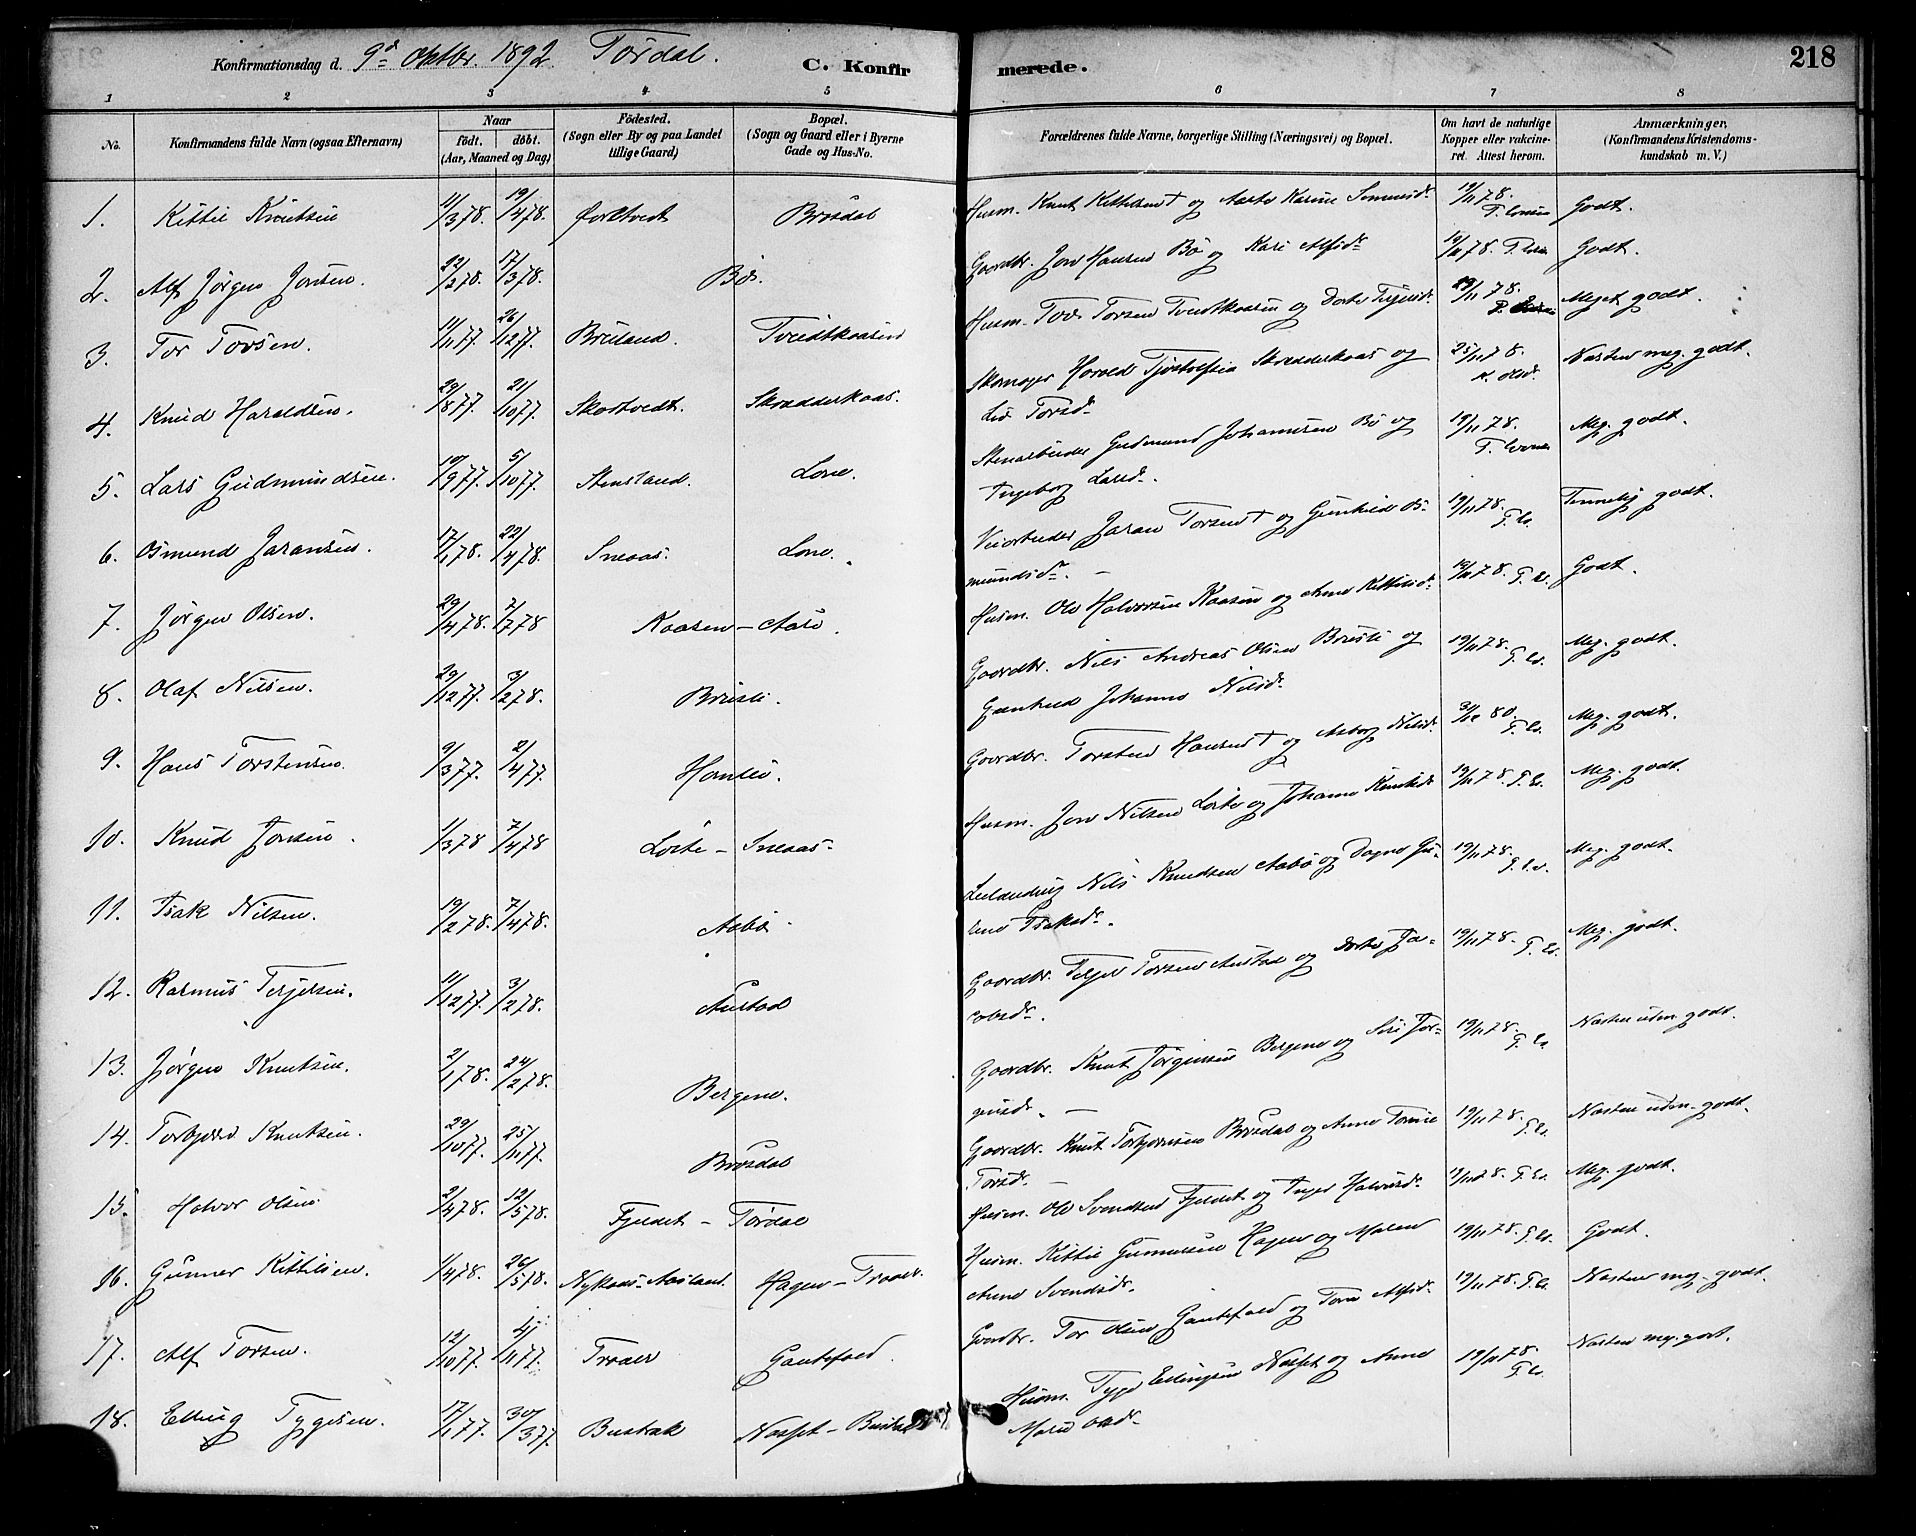 Konfirmationsdag d. 9de Oktbr. 1892. Tørdal. C. Konfirmerede. 218
1 2 3 4 5 6 7 8
No. Konfirmandens fulde Navn (ogsaa Efternavn) Naar født. døbt. (Aar, Maaned og Dag) Fødested. (Sogn eller By og paa Landet tillige Gaard) Bopæl. (Sogn og Gaard eller i Byerne Gade og Hus-No.) Forældrenes fulde Navne, borgerlige Stilling (Næringsvei) og Bopæl. Om havt de naturlige Kopper eller vakcineret. Attest herom. Anmærkninger, (Konfirmandens Kristendomskundskab m. V.)
1. Kittil Knutsen 11/3 78. 19/4 78. Brøsdal Husm. Knut Kittilsen † og Aaste Karine 19/11 78. Godt.
2. Alf Jørgen Jonsen. 22/2 78. 17/3 78. Bø. Gaardbr. Jon Hansen Bø og Kari Alfsdr. 19/11 78. Godt.
3. Tor Torsen. 11/11 77. 26/12 77. Breiland. Tveitkaasen Husm. Tor Torsen Tveitkaasen og Dorte 29/11 78. Meget godt.
4. Knud Haraldsen. 29/8 77. 21/10 77. Skottvedt. Skrædderkaas. Skomager Harald Tjostolfsen Skrædderkaas og
Liv Torsdr. 25/11 78. Næsten meg. godt.
5. Lars Gudmundsen. 10/9 77. 5/10 77. Stensland. Lone. Stenarbeider Gudmund Johannesen Bø og
Ingeborg Larsdr. 19/11 78. Meg. godt.
6. Osmund Jaransen. 17/1 78. 22/4 78. Sneaas. Lone. Veiarbeider Jaran Torsen † og Gunhild Os-
mundsdr. 19/11 78. T. Co. Temmelig godt.
7. Jørgen Olsen. 29/4 78. 7/7 78 Kaasen – Husm. Ole Halvorsen Kaasen og Anne Kittilsdr. 19/11 78. T. Co. Godt.
8. Olaf Nilsen. 29/12 77. 3/2 78. Breisli. Gaardbr. Nils Andreas Olsen Breisli og
Gunhild Johanne Nilsdr. 19/11 78. T. Co. Meg. godt.
9. Hans Torstensen. 9/3 77. 2/4 77. Gaardbr. Torsten Hansen † og Aasborg Nilsdr. 80. T. Co. Meg. godt.
10. Knud Jonsen. 1/3 78 7/4 78 Løite – Sneaas. Husm. Jon Nilsen Løite og Johanne 19/11 78. T. Co. Meg. godt.
11. Isak Nilsen. 19/2 78. 7/4 78. Aabø. Nils Knudsen Aabø og Dagne Gu-
Isaksdr. 19/11 78. T. Co. Meg. godt.
12. Rasmus Terjesen. 11/12 77. 3/2 78. Austad Gaardbr. Terjer Torsen Austad og Dorte Ja-
cobsdr. 19/11 78. T. Co. Meg. godt.
13. Jørgen Knutsen. 2/1 78. 24/2 78. Bergene. Gaardbr. Knut Jørgensen Bergene og Siri Jør-
gensdr. – 19/11 78. T. Co. Næsten uden. godt.
14. Torbjørn Knutsen. 29/10 77. 25/11 77. Brøsdal Gaardbr. Knut Torbjørnsen Brøsdal og Anne Tomine
Torsdr. – 19/11 78. T. Co. Næsten uden. godt.
15. Halvor Olsen 2/4 78. 12/5 78. Fjeldet – Tørdal Husm. Ole Svendsen Fjeldet og Inger Halvorsdr. 19/11 78. T. Co. Meg. godt.
16. Gunner Kittilsen. 1/4 78. 26/5 78. Nykaas – Aasland. Hagen – Traaer. Husm. Kittil Gunnersen Hagen og Maren
Anne Svendsdr. 19/11 78. T. Co. Godt.
17. Alf Torsen. 12/10 77. 4/11 77. Traaer Gautefald. Gaardbr. Tor Olsen Gautefald og Tone Alfsdr. 19/11 78. T. Co. Næsten meg. godt.
18. Elling Tygesen. 17/1 77. 30/3 77. Bustrak Naaset – Husm. Tyge Ellingsen Naaset og Anne
Marie Olsdr. 19/11 78. T. Co. Næsten meg. godt.